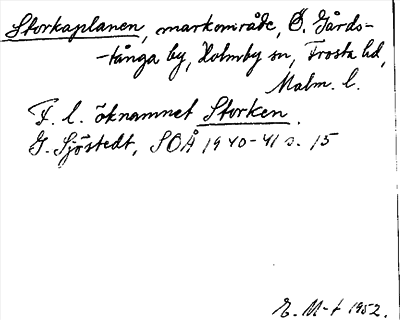 Storkaplanen, markområde, Ö. Gårds-
-tånga by, Holmby sn, Frosta hd,
Malm. l.
F. l. öknamnet Storken.
G. Sjöstedt, SOÅ 1940-41 s. 15
E. M-t 1952.